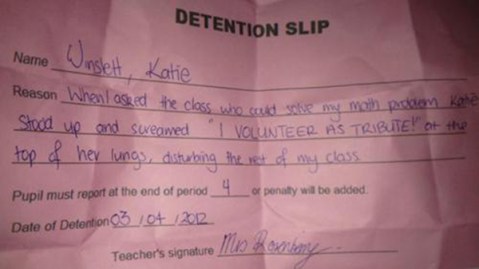 DETENTION SLIP
Name Winslett, Katie
Reason When I asked the class who could solve my math problem Katie
stood up and screamed "I VOLUNTEER AS TRIBUTE!" at the
top of her lungs, disturbing the rest of my class
Pupil must report at the end of period 4 or penalty will be added.
Date of Detention 03 / 04 / 2012
Teacher's signature Mrs